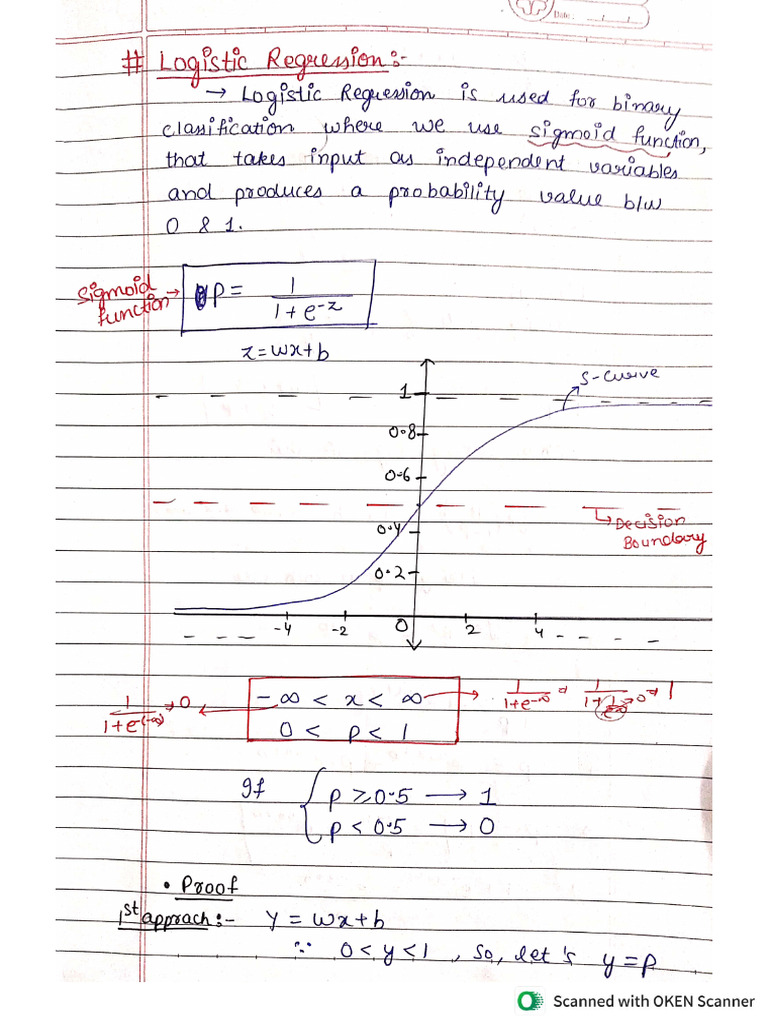 Date :
# Logistic Regression:-
→ Logistic Regression is used for binary
classification where we use sigmoid function,
that takes input as independent variables
and produces a probability value b/w
0 & 1.
Sigmoid function → P = 1 / 1 + e^-z
z = wx + b
S-curve
1
0.8
0.6
Decision Boundary
0.4
0.2
-4 -2 0 2 4
1 / 1 + e^-(-∞) → 0 ← -∞ < x < ∞ → 1 / 1 + e^-∞
0 < P < 1
If { P ≥ 0.5 → 1
P < 0.5 → 0
• Proof
1st apprach:- Y = wx + b
∵ 0 < y < 1 , so, let's y = p
Scanned with OKEN Scanner